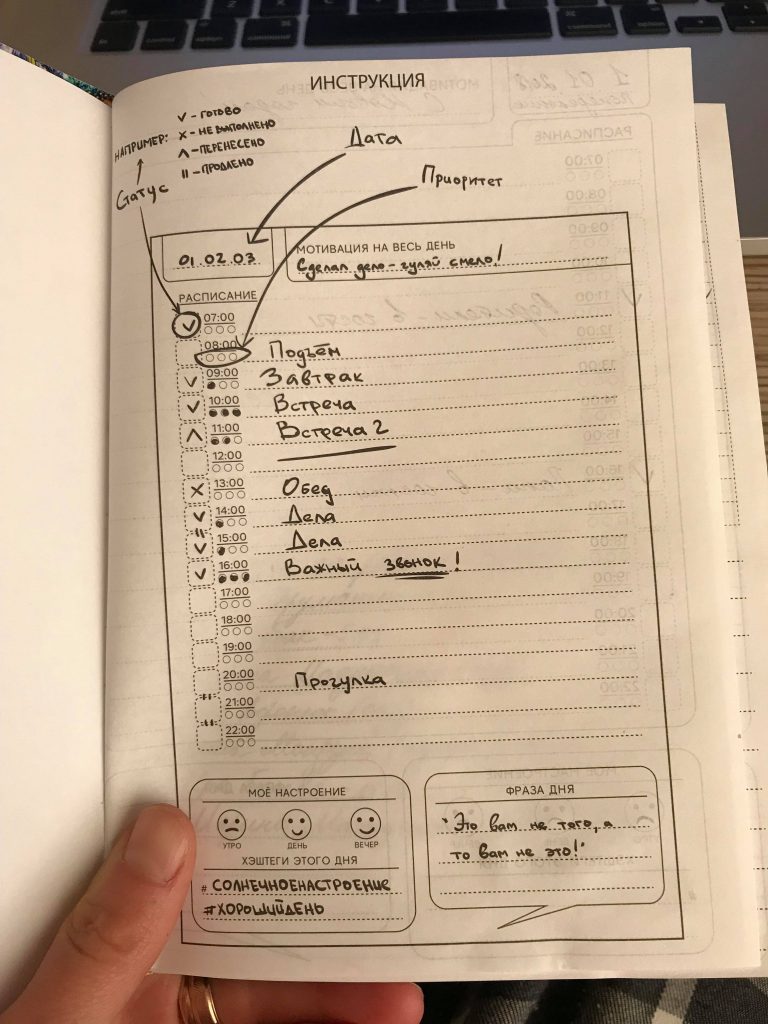 ИНСТРУКЦИЯ
НАПРИМЕР:
✓ - ГОТОВО
✗ - НЕ ВЫПОЛНЕНО
∧ - ПЕРЕНЕСЕНО
II - ПРОДЛЕНО
Статус
Дата
Приоритет
01.02.03
МОТИВАЦИЯ НА ВЕСЬ ДЕНЬ
Сделал дело - гуляй смело!
РАСПИСАНИЕ
07:00
08:00 Подъём
09:00 Завтрак
10:00 Встреча
11:00 Встреча 2
12:00
13:00 Обед
14:00 Дела
15:00 Дела
16:00 Важный звонок!
17:00
18:00
19:00
20:00 Прогулка
21:00
22:00
МОЁ НАСТРОЕНИЕ
УТРО ДЕНЬ ВЕЧЕР
ХЭШТЕГИ ЭТОГО ДНЯ
# СОЛНЕЧНОЕНАСТРОЕНИЕ
#ХОРОШИЙДЕНЬ
ФРАЗА ДНЯ
"Это вам не того, а
то вам не это!"